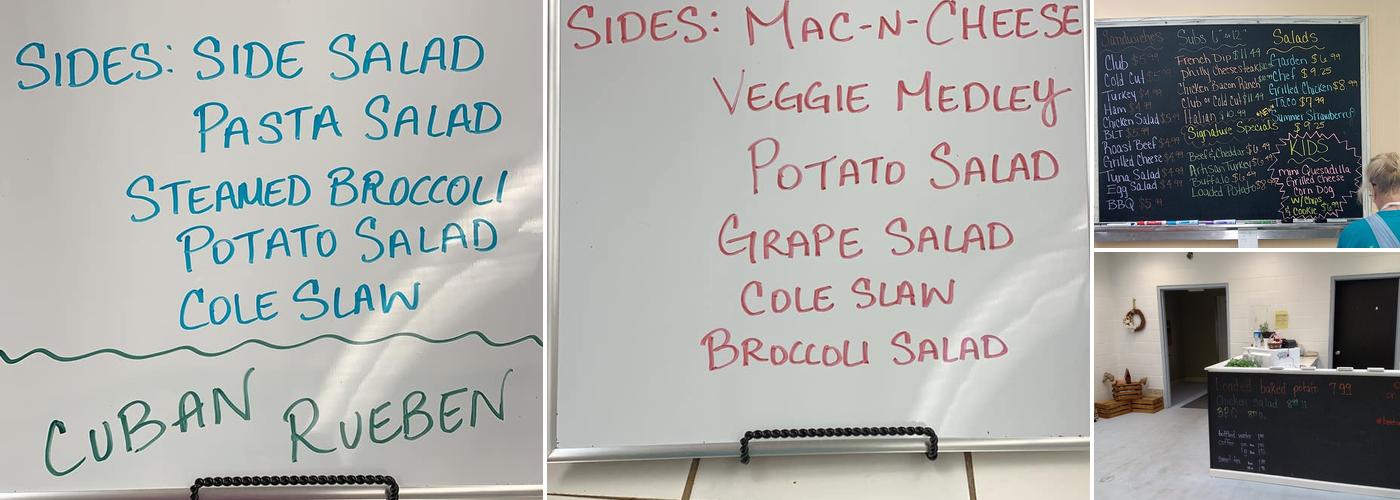 SIDES: SIDE SALAD
PASTA SALAD
STEAMED BROCCOLI
POTATO SALAD
COLE SLAW
CUBAN RUEBEN
SIDES: MAC-N-CHEESE
VEGGIE MEDLEY
POTATO SALAD
GRAPE SALAD
COLE SLAW
BROCCOLI SALAD
Sandwiches
Club $5.99
Cold Cut $5.99
Turkey $4.99
Ham $4.99
Chicken Salad $5.99
BLT $5.99
Roast Beef $4.99
Grilled Cheese $4.99
Tuna Salad $4.99
Egg Salad $4.99
BBQ $5.99
Subs 6" or 12"
French Dip $11.49
Philly Cheesesteak
Chicken Bacon Ranch
Club or Cold Cut $11.49
Italian $10.99
Signature Specials
Beef & Cheddar $6.49
Artisan Turkey $6.49
Buffalo $6.49
Loaded Potato
Salads
Garden $6.99
Chef $9.25
Grilled Chicken $8.99
Taco $7.99
*NEW*
Summer Strawberry
$9.25
KIDS
Mini Quesadilla
Grilled Cheese
Corn Dog
W/Chips
& Cookie
Loaded baked potato 7.99
Chicken salad
BBQ
bottled water
coffee
sweet tea